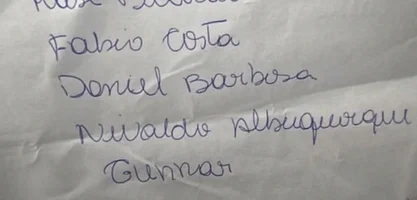 Fabio Costa
Daniel Barbosa
Nivaldo Albuquerque
Gunnar